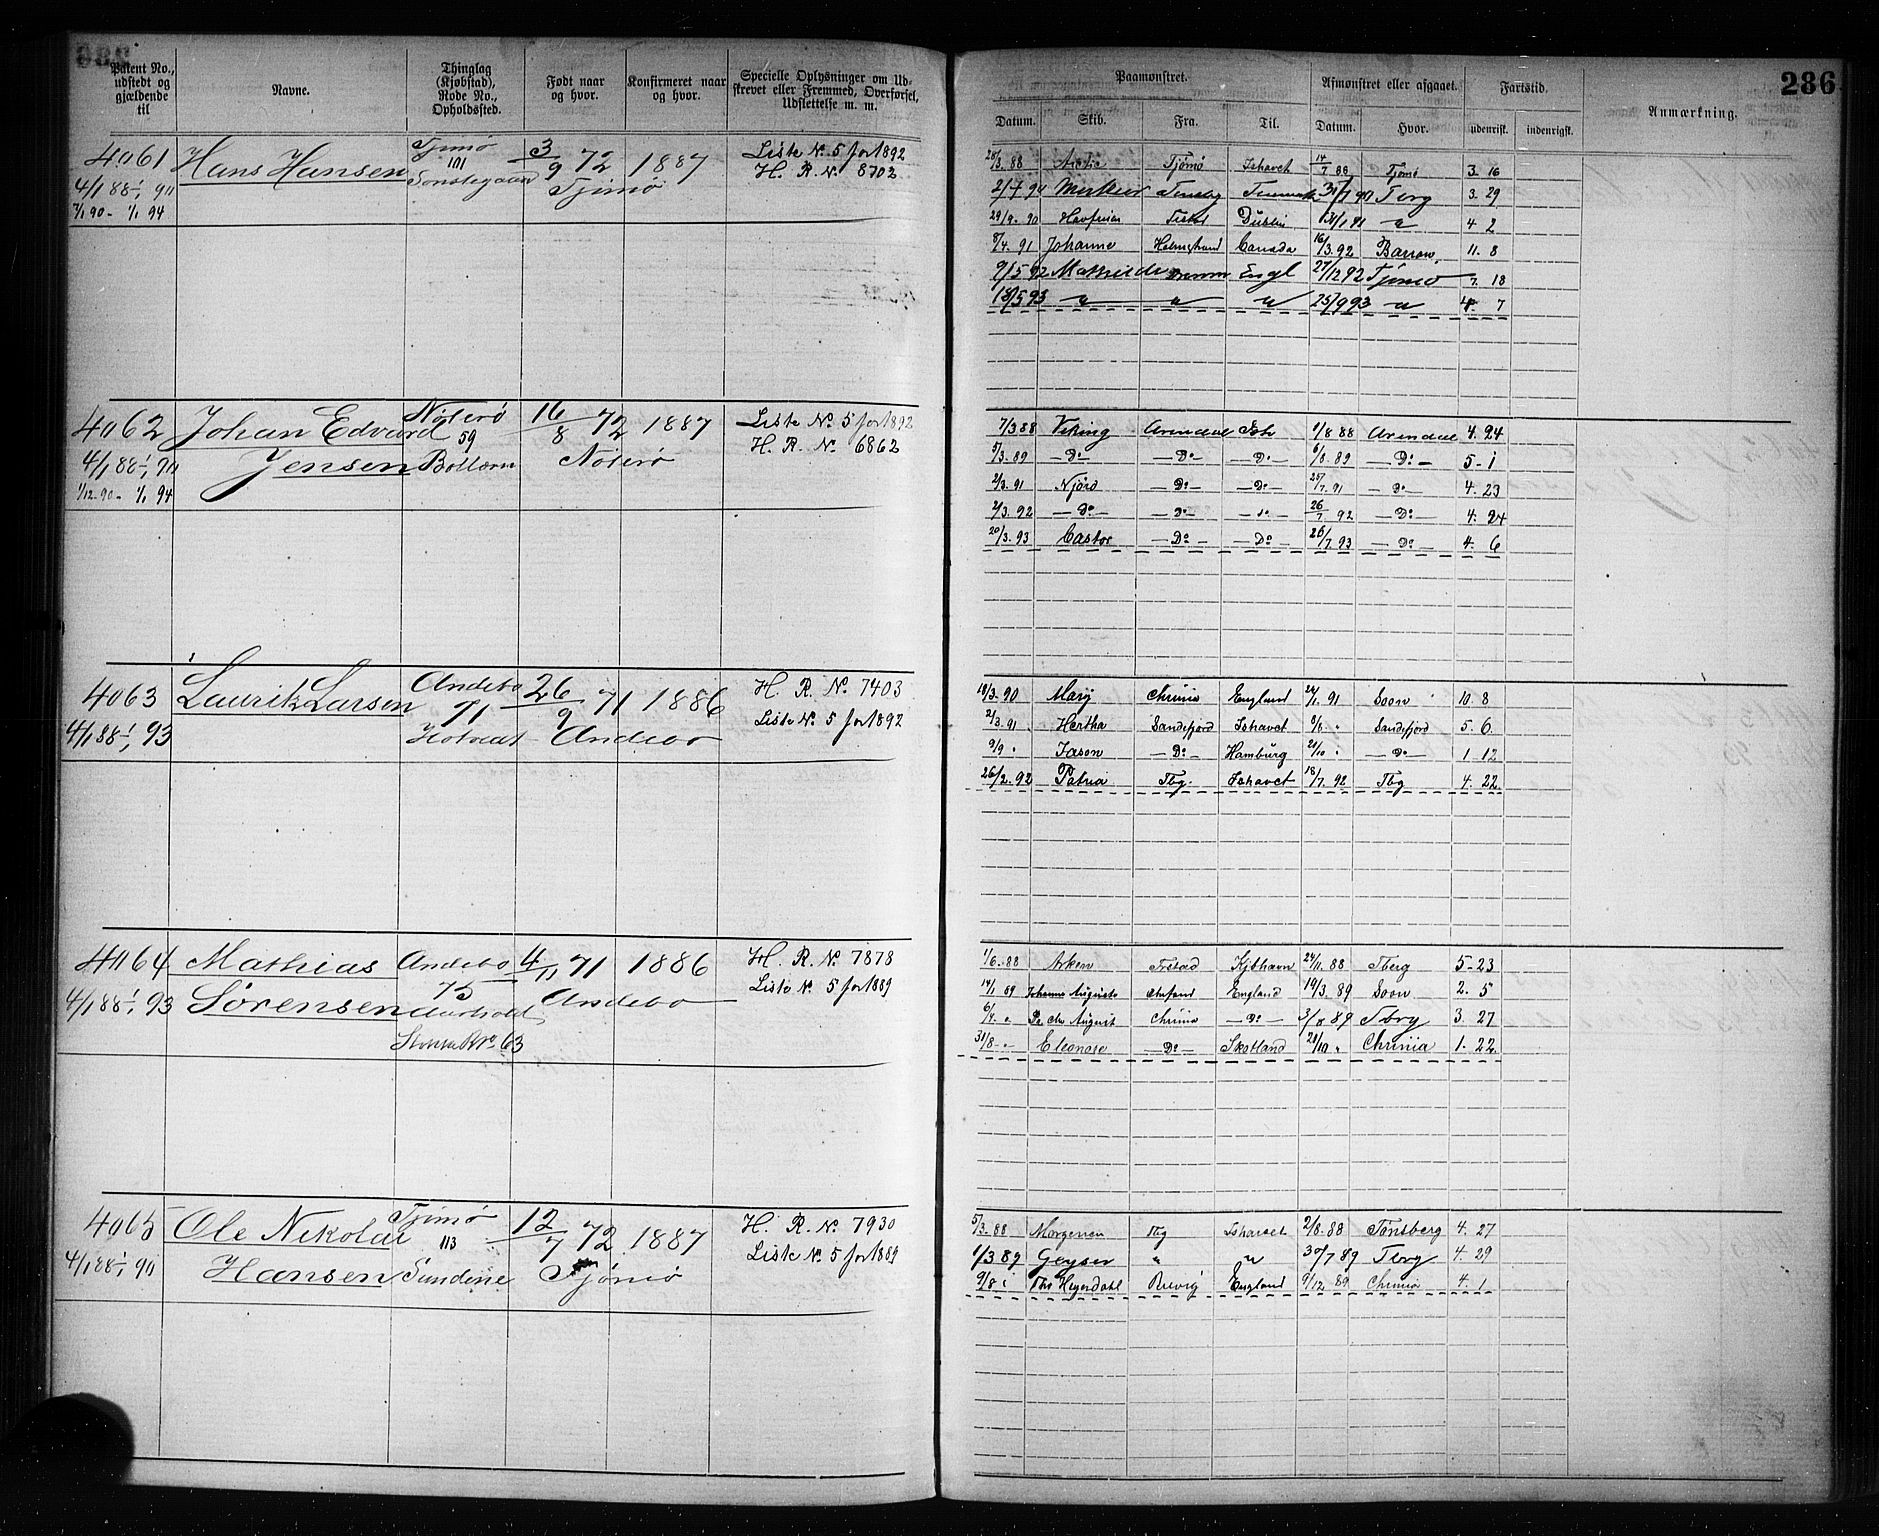 286
Patent No., udstedt og gjældende til
Navne.
Thinglag (Kjøbstad), Rode No., Opholdssted.
Født naar og hvor.
Konfirmeret naar og hvor.
Specielle Oplysninger om Udskrevet eller Fremmed, Overførsel, Udslettelse m. m.
Paamønstret.
Afmønstret eller afgaaet.
Fartstid.
Anmærkning.
Datum. Skib. Fra. Til. Datum. Hvor. udenrikst. indenrigst.
4061 Hans Hansen Tjømø 3/9 72 1887 Liste No. 5 for 1892
101 H. R. No. 8702
4/1 88 - 1/1 90 Tjømø
1/1 94
28/3 88 Tjømø Ishavet 14/7 88 Tjømø 3. 16
Tbrg 3. 29
29/9. 90 Dublin 4 2
8/4. 91 Johanne Holmestrand Canada 16/3. 92 Barrow 11. 8
9/5 92 Mathilde Engl 27/12 92 Tjømø 7. 18
18/5 93 " " " 25/9 93 " 4. 7
4062 Johan Edvard Nøterø 16/8 72 1887 Liste No. 5 for 1892
59 H. R. No. 6862
4/1 88 - 1/1 90 Jensen Bollærn Nøterø
1/12. 90 - 1/1 94
7/3 88 Viking Arendal Ish 1/8 88 Arendal 4. 24
5/3. 89 - Do - - Do - - Do - 6/8. 89 - Do - 5 - 1
2/3. 91 Njørd - Do - - Do - 25/7. 91 - Do - 4. 23
2/3. 92 - Do - - Do - 26/7. 92 - Do - 4. 24
20/3. 93 Castor - Do - - Do - 26/7. 93 - Do - 4. 6
4063 Laurits Larsen Andebo 26/9 71 1886 H. R. No. 7403
71 Liste No. 5 for 1892
4/1 88 - 1/1 93 Andebo
18/3. 90 Mary Chrinia England 91 Soon 10. 8
2/3. 91 Hertha Sandefjord Ishavet Sandefjord 5. 6
9/9 " Jason - Do - Hamburg 21/10 " - Do - 1. 12
26/2. 92 Patria Tbg. Ishavet 18/7. 92 Tbg 4. 22
4064 Mathias Andebo 4/11 71 1886 H. R. No. 7878
75 Liste No. 5 for 1889
4/1 88 - 1/1 93 Sørensen Andebo
63
1/6. 88 Arken Frstad Kjbhavn 24/11. 88 Tberg 5 - 23
14/1 89 Johanne Augusta England 19/3. 89 Soon 2. 5
August Chrinia - Do - 89 Tbrg 3. 27
31/8 - " - Eleonore - Do - Skotland 21/10 " Chrinia 1. 22
4065 Ole Nikolai Tjømø 12/7 72 1887 H. R. No. 7930
113 Liste No. 5 for 1889
4/1 88 - 1/1 90 Hansen Sundene Tjømø
5/3. 88 Morgenen Tbg Ishavet 2/8. 88 Tønsberg 4. 27
1/3 89 Geyser " " 30/7 89 Tbrg 4. 29
9/8 Ths Heyerdahl Brevig England 9/12 89 Chrinia 4. 1